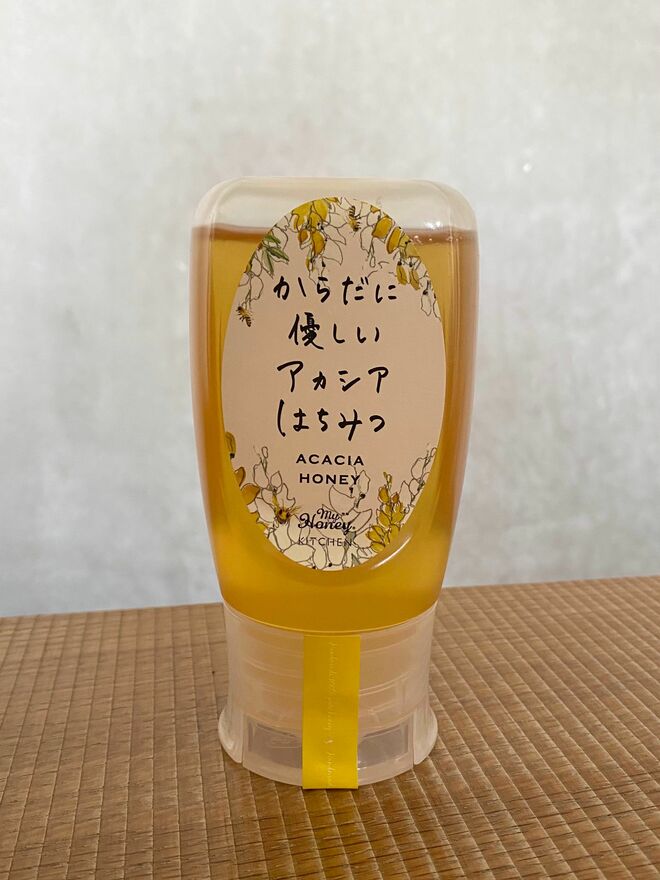 からだに
優しい
アカシア
はちみつ
ACACIA
HONEY
My
Honey
KITCHEN